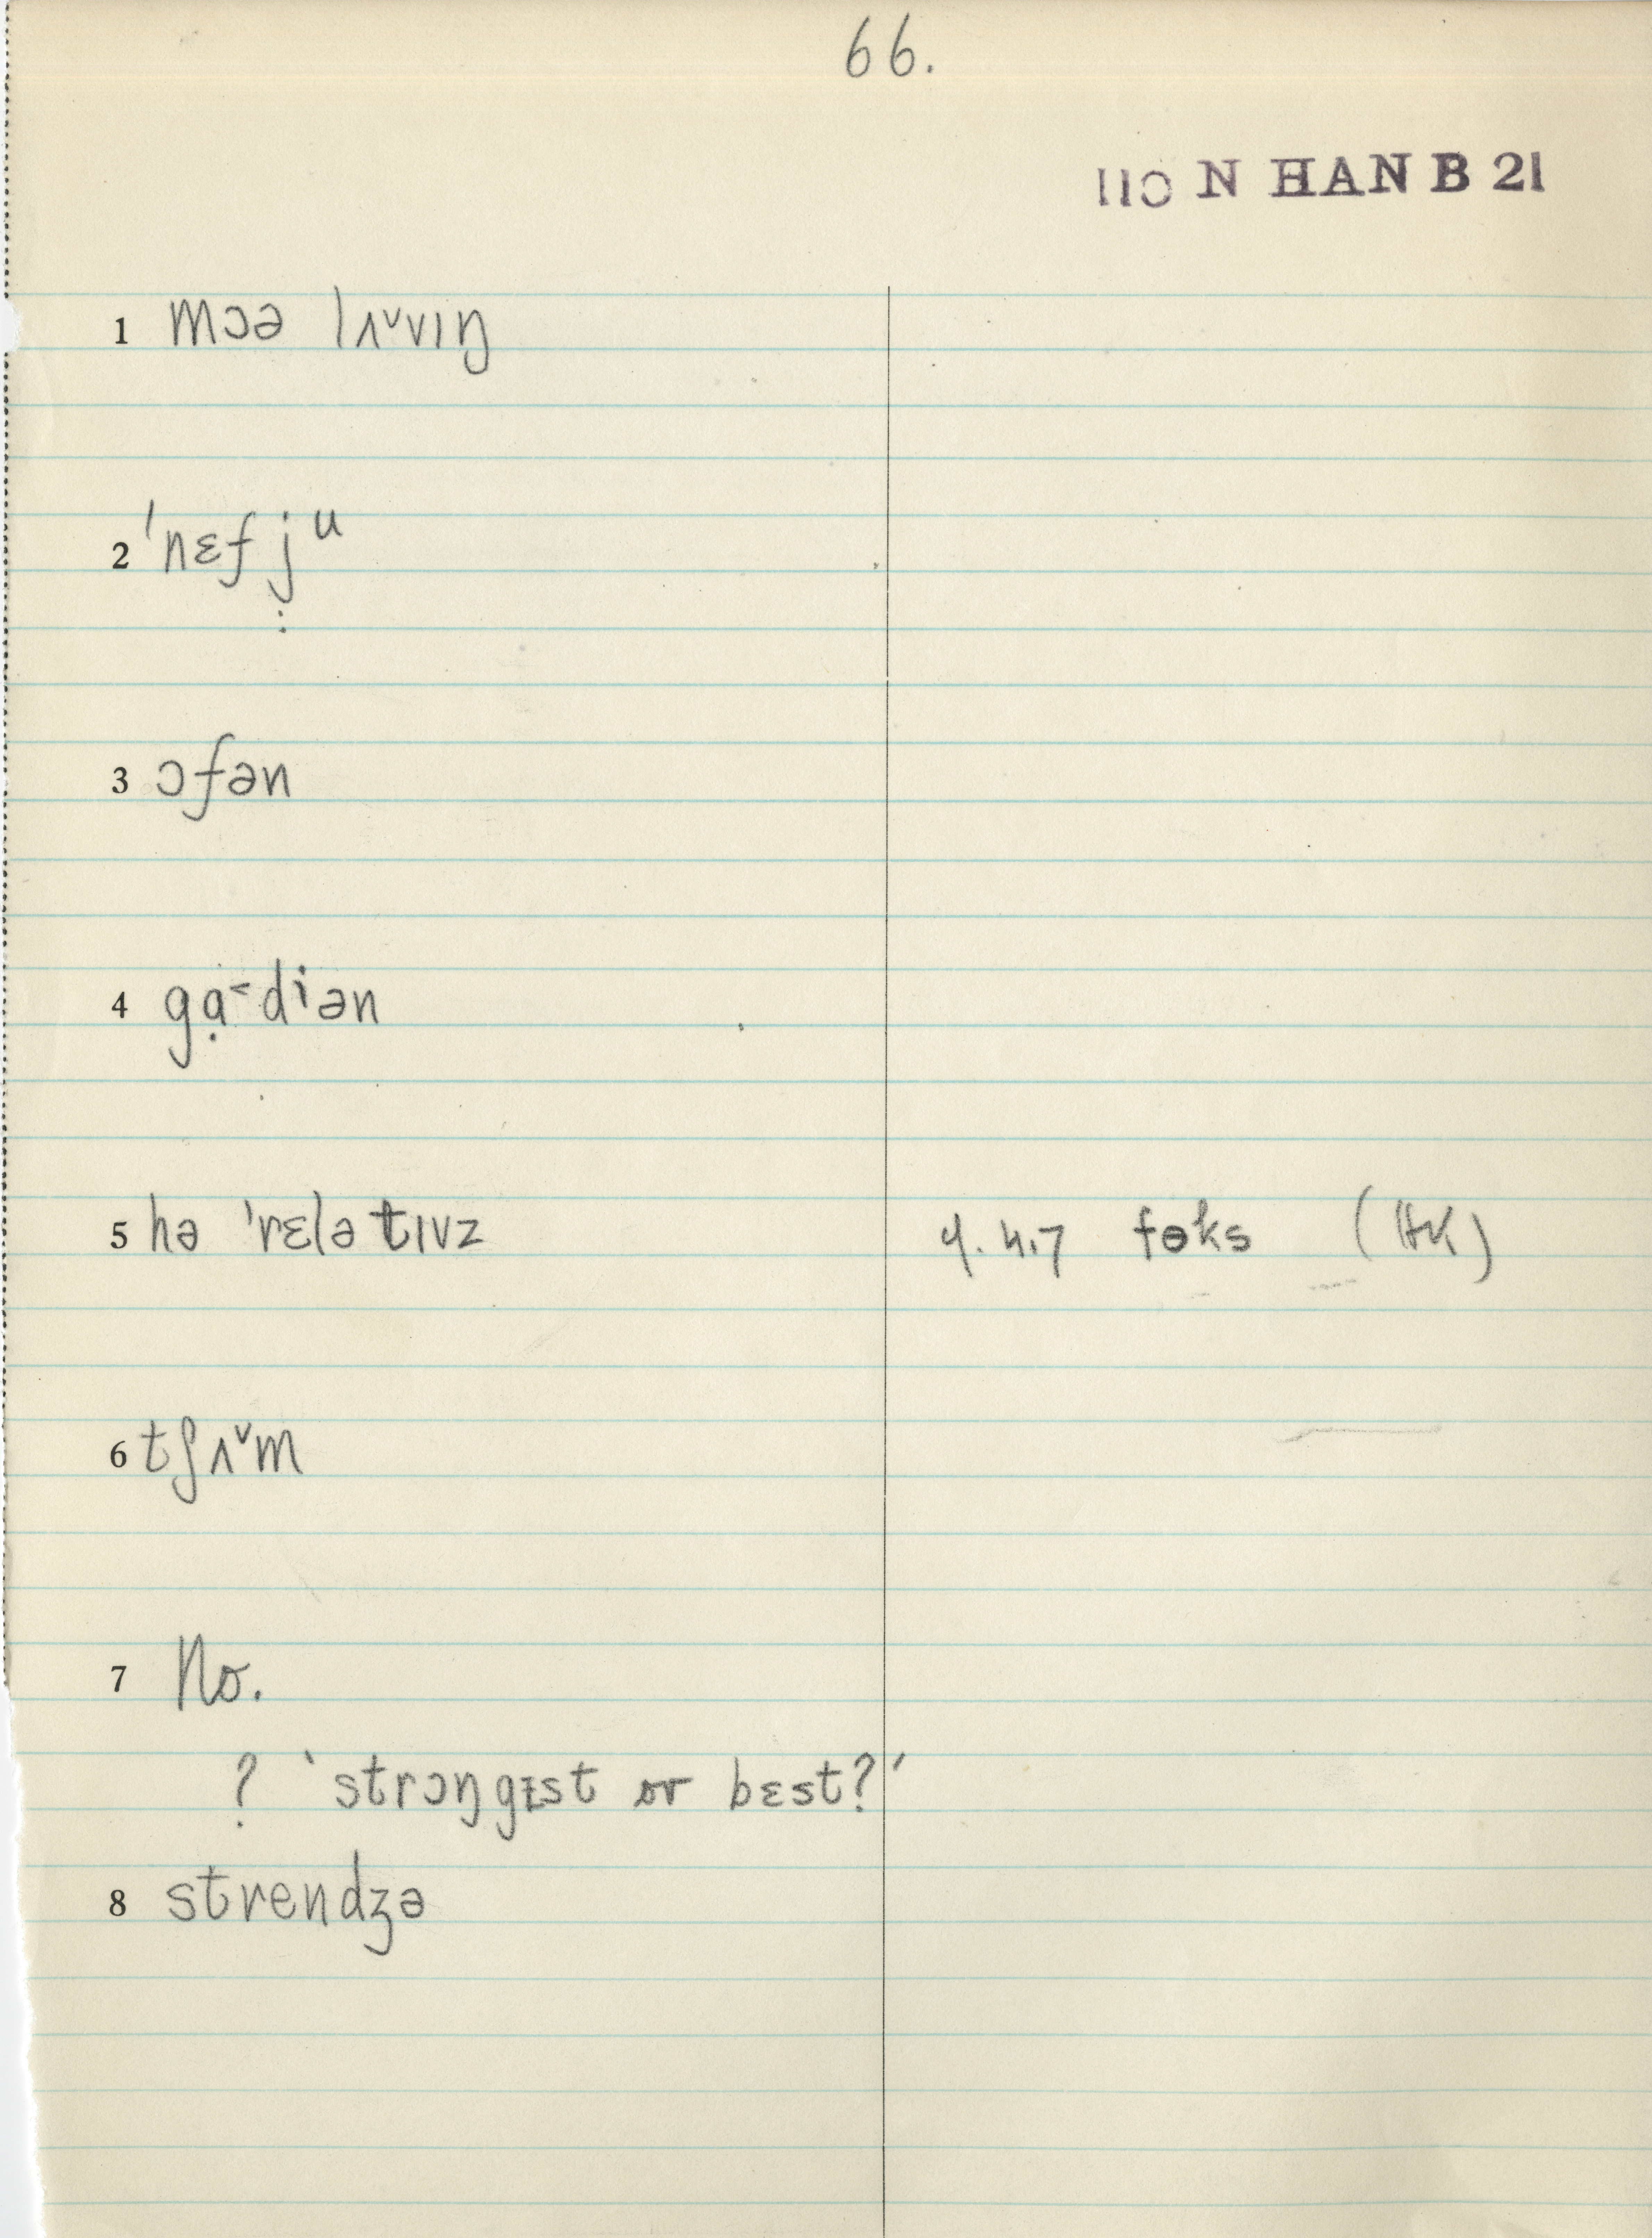 66.
110 N HAN B 21
1 mɔə lʌ˅vɪŋ
2 ˈnɛfjᵘ
3 ɔfən
4 gɑ̣˂dⁱən
5 hə ˈrɛlətɪvz 4.4.7 fɵks (HK)
6 tʃʌ˅m
7 No.
? 'strɔŋgɪst or bɛst?'
8 strendʒə